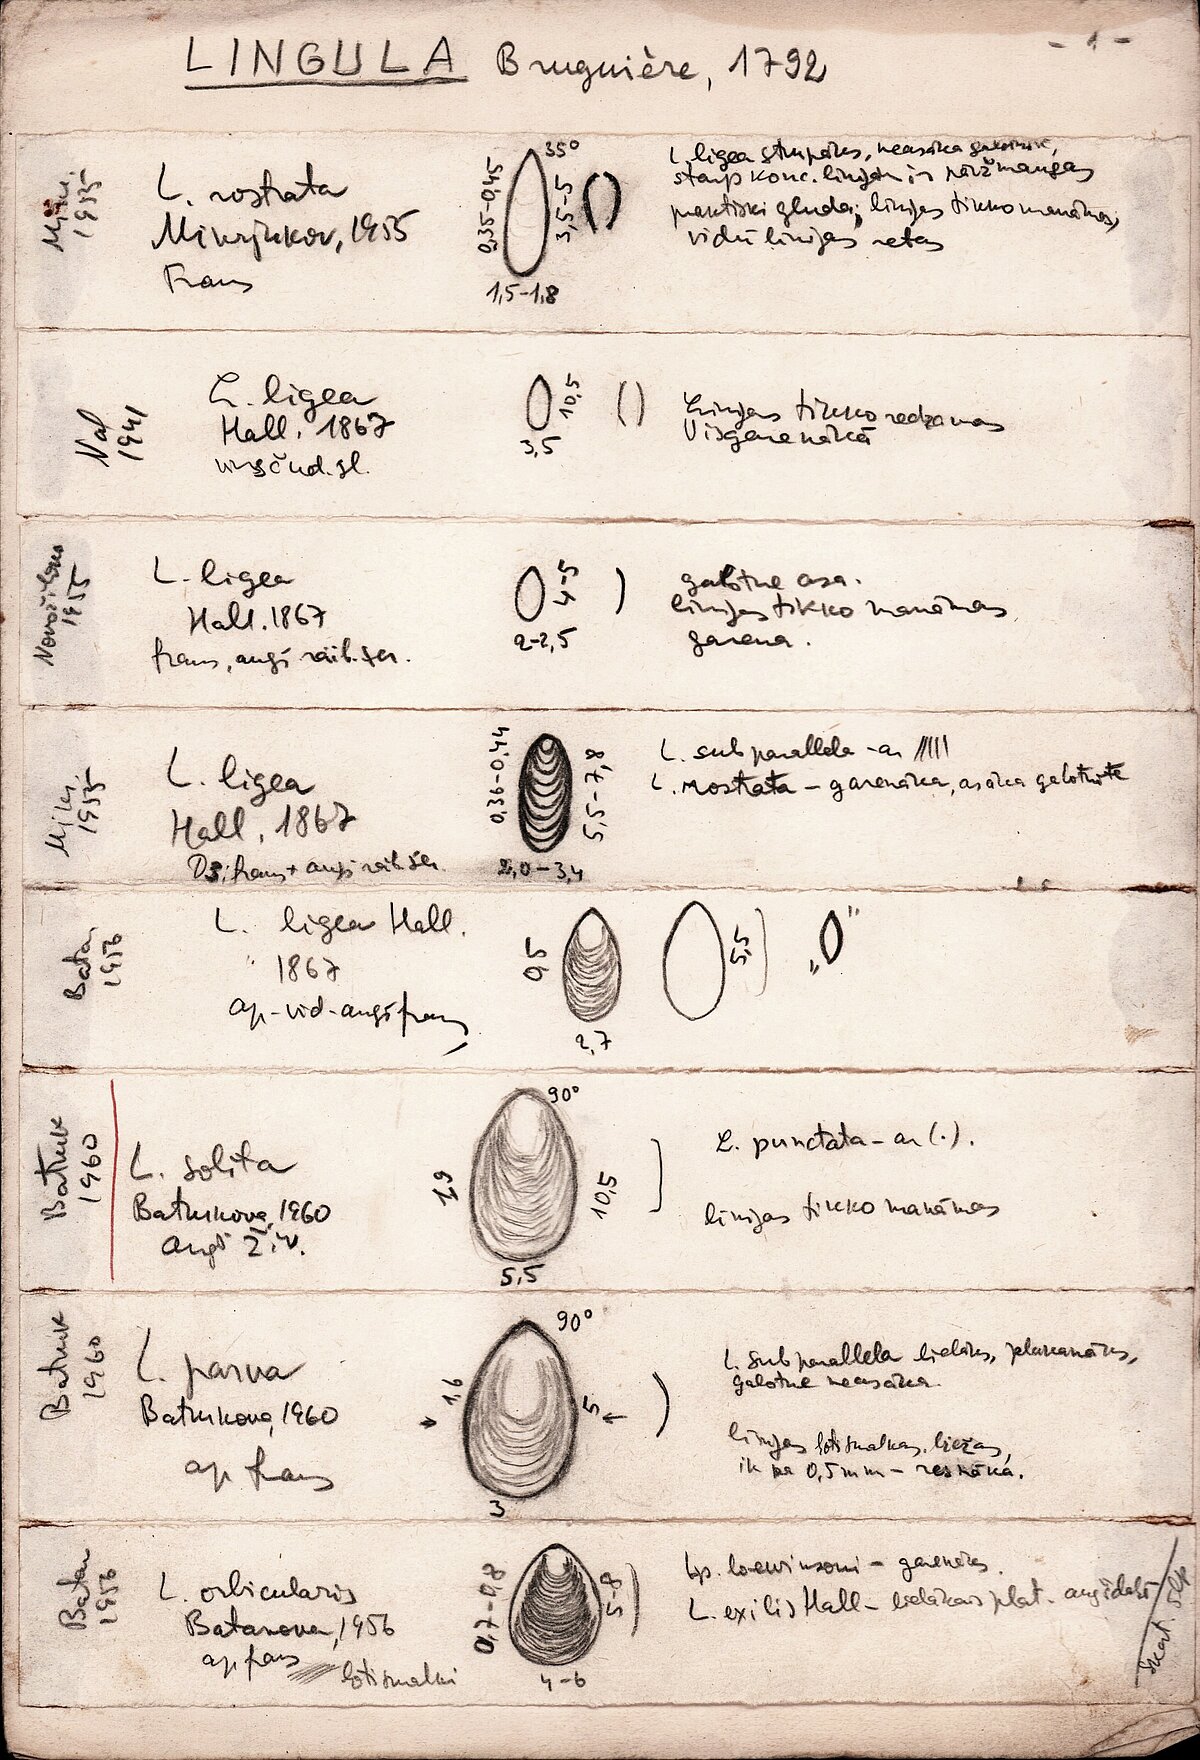 - 1 -
LINGULA Bruguière, 1792
1955
L. rostrata
1955
Frans
35°
0,35-0,45
3,5-5
1,5-1,8
L. ligea neasāka
starp konc. līnijām ir
praktiski gluda; līnijas tikko manāmas,
vidū līnijas retas
Nal
1941
L. ligea
Hall. 1867
10,5
3,5
Līnijas tikko redzamas
Visgarenākā
1955
L. ligea
Hall. 1867
frans, augš
4-5
2-2,5
galotne asa.
līnijas tikko manāmas
garena.
1955
L. ligea
Hall, 1867
frans + augš
0,36-0,44
5,5-7,8
2,0-3,4
L. subparallela -ar
L. rostrata - garenāka, asāka galotnīte
Bata.
1956
L. ligea Hall.
1867
ap-vid-augš frans
0,5
2,7
5,5
Batruk
1960
L. solita
Batrukova, 1960
augš
90°
1,9
10,5
5,5
L. punctata - ar (.).
līnijas tikko manāmas
Batruk
1960
L. parva
Batrukova, 1960
ap frans
90°
1,6
5
3
L. subparallela lielāks, plakanāks,
galotne neasāka
līnijas ļoti smalkas, biežas,
ik pa 0,5mm - resnāka.
Batan
1956
L. orbicularis
Batanova, 1956
ap frans
ļoti smalki
0,7-0,8
5-8
4-6
Lp. loewinsoni - garenāks.
L. exilis Hall - lielākais plat. augšdaļā